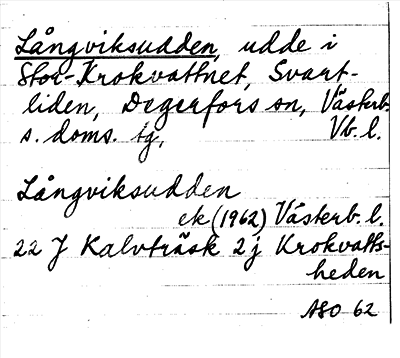 Långviksudden, udde i
Stor-Krokvattnet, Svart-
liden, Degerfors sn, Västerb.
s. doms. tg, Vb. l.
Långviksudden
ek (1962) Västerb. l.
22 J Kalvträsk 2 j Krokvatts-
heden
ASO 62